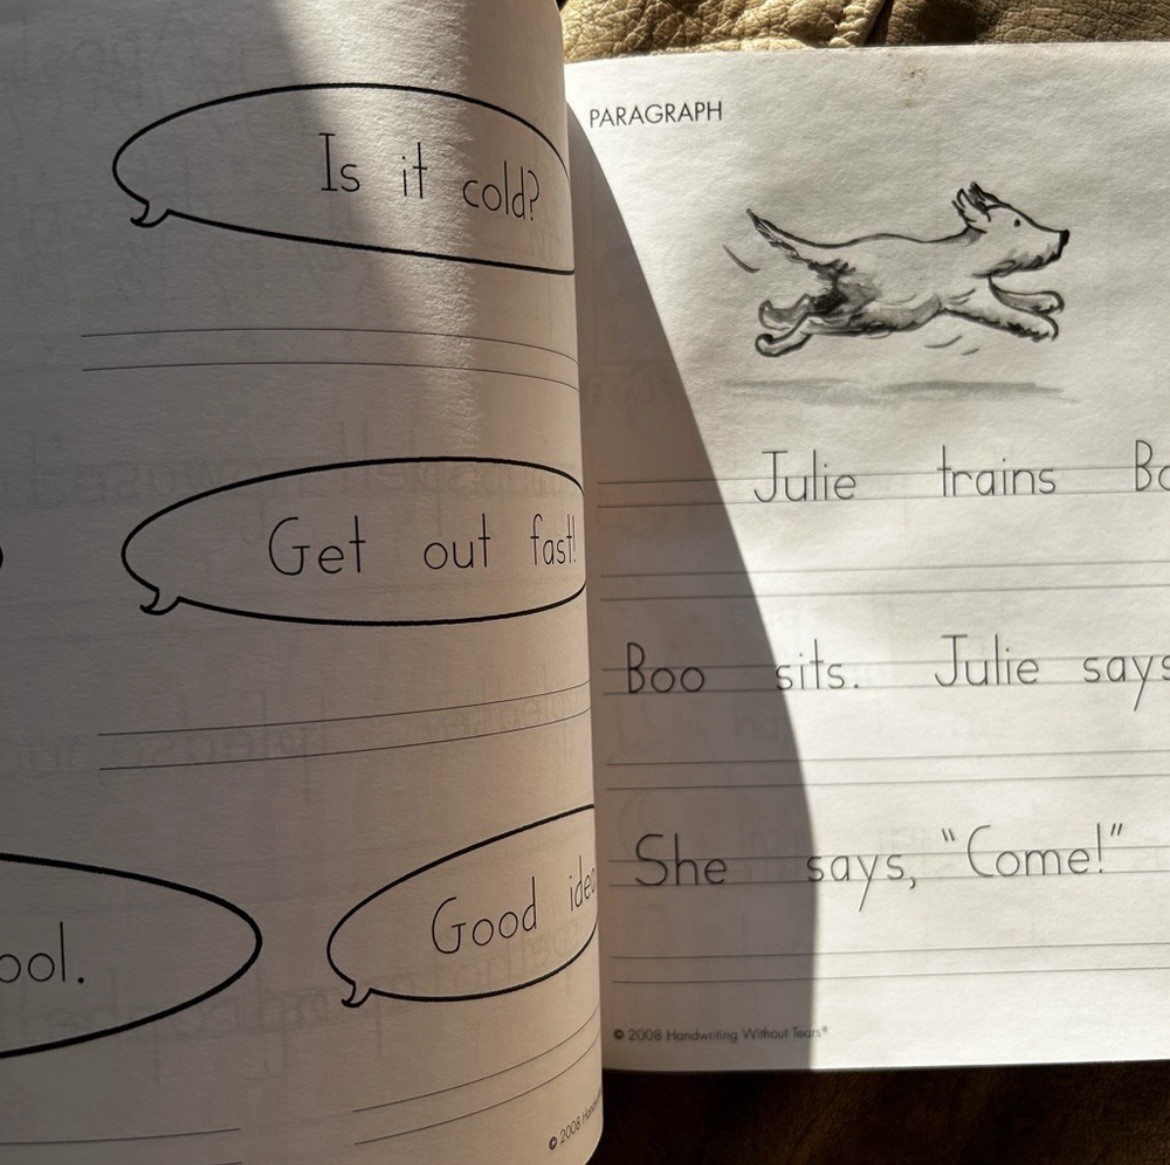 Is it cold?
Get out fast!
ool.
Good idea
© 2008 Handw
PARAGRAPH
Julie trains Bo
Boo sits. Julie says
She says, “Come!”
© 2008 Handwriting Without Tears®